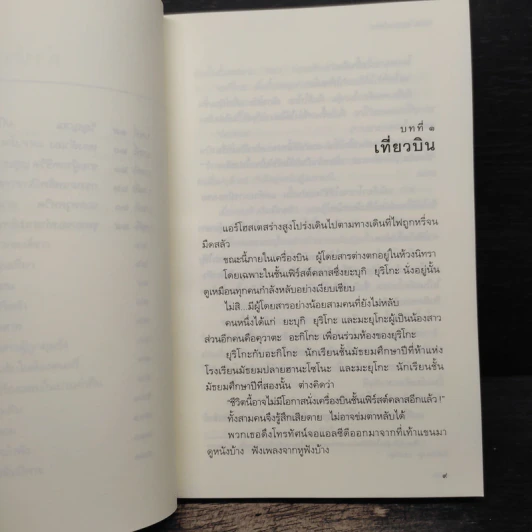 บทที่ ๑
เที่ยวบิน
แอร์โฮสเตสร่างสูงโปร่งเดินไปตามทางเดินที่ไฟถูกหรี่จน
มืดสลัว
ขณะนี้ภายในเครื่องบิน ผู้โดยสารต่างตกอยู่ในห้วงนิทรา
โดยเฉพาะในชั้นเฟิร์สต์คลาสซึ่งยะบุกิ ยุริโกะ นั่งอยู่นั้น
ดูเหมือนทุกคนกำลังหลับอย่างเงียบเชียบ
ไม่สิ...มีผู้โดยสารอย่างน้อยสามคนที่ยังไม่หลับ
คนหนึ่งได้แก่ ยะบุกิ ยุริโกะ และมะยุโกะผู้เป็นน้องสาว
ส่วนอีกคนคือคุวาตะ อะกิโกะ เพื่อนร่วมห้องของยุริโกะ
ยุริโกะกับอะกิโกะ นักเรียนชั้นมัธยมศึกษาปีที่ห้าแห่ง
โรงเรียนมัธยมปลายฮานะโซโนะ และมะยุโกะ นักเรียนชั้น
มัธยมศึกษาปีที่สองนั้น ต่างคิดว่า
"ชีวิตนี้อาจไม่มีโอกาสนั่งเครื่องบินชั้นเฟิร์สต์คลาสอีกแล้ว !"
ทั้งสามคนจึงรู้สึกเสียดาย ไม่อาจข่มตาหลับได้
พวกเธอดึงโทรทัศน์จอแอลซีดีออกมาจากที่เท้าแขนมา
ดูหนังบ้าง ฟังเพลงจากหูฟังบ้าง